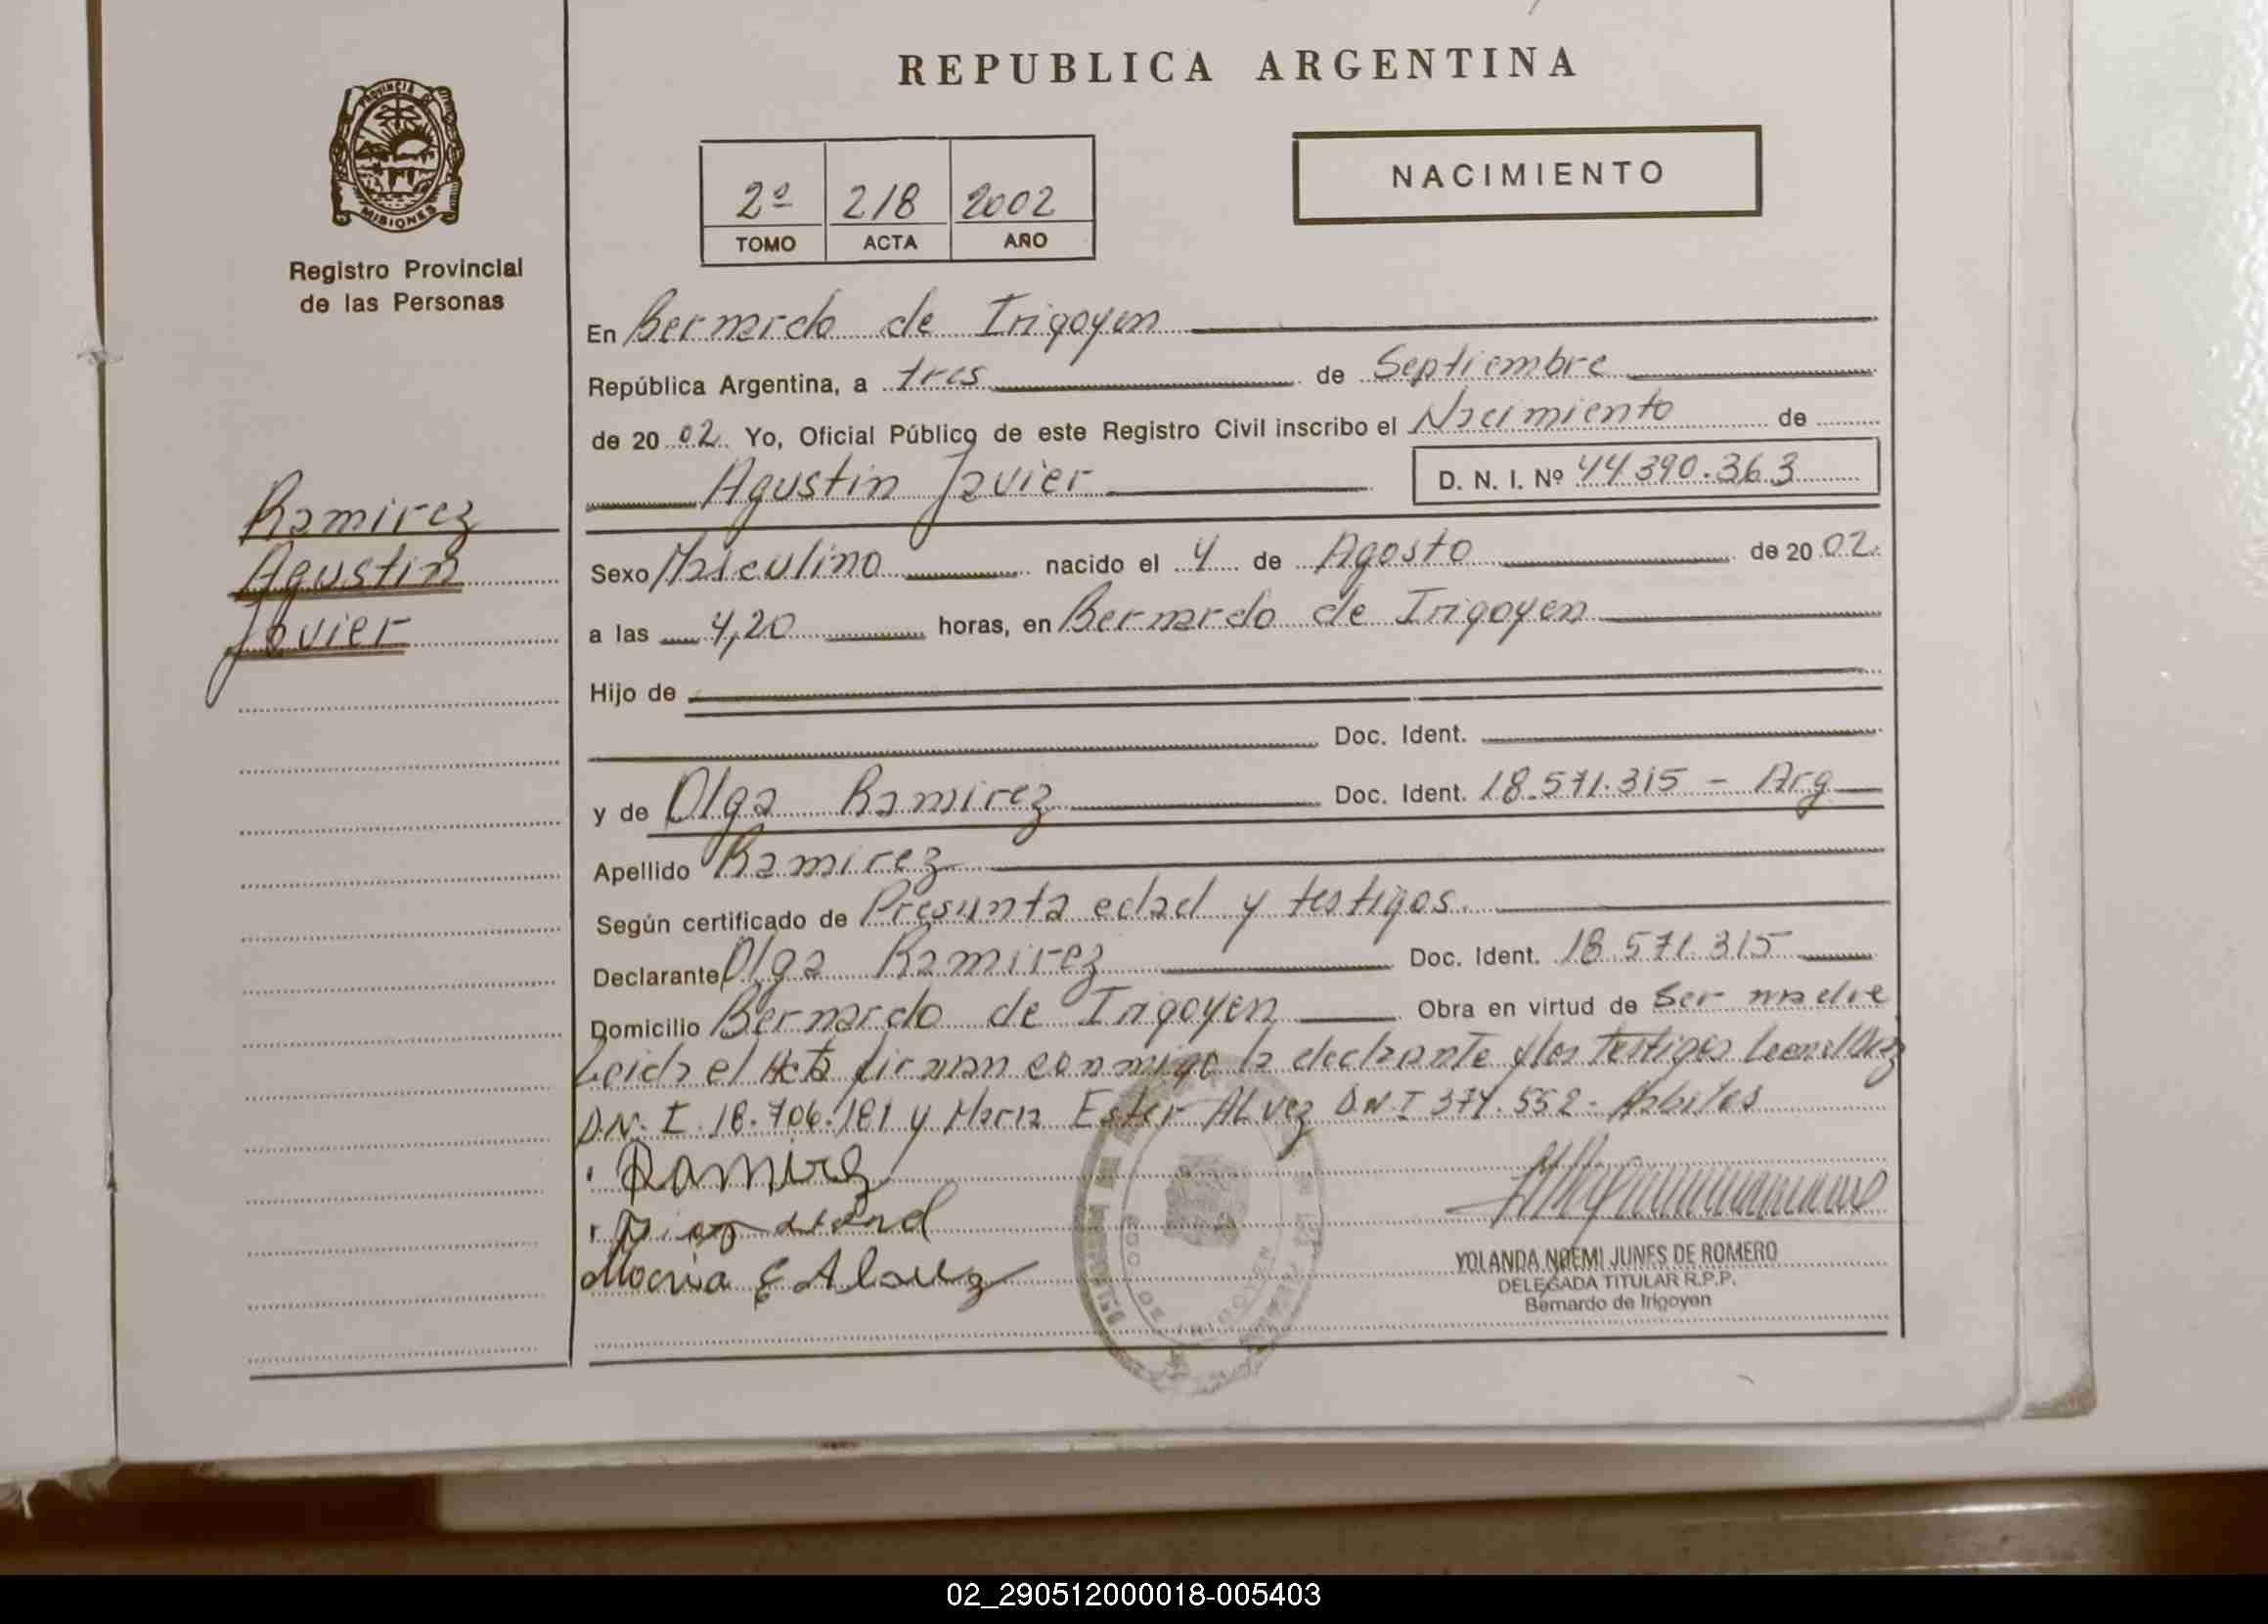 REPUBLICA ARGENTINA
PROVINCIA D
MISIONES
Registro Provincial
de las Personas
2º 218 2002
TOMO ACTA AÑO
NACIMIENTO
En Bernardo de Irigoyen
República Argentina, a tres de Septiembre
de 20 02 Yo, Oficial Público de este Registro Civil inscribo el Nacimiento de
Agustin Javier D. N. I. Nº 44.390.363
Ramirez
Agustin
Javier
Sexo Masculino nacido el 4 de Agosto de 20 02
a las 4,20 horas, en Bernardo de Irigoyen
Hijo de
Doc. Ident.
y de Olga Ramirez Doc. Ident. 18.571.315 - Arg
Apellido Ramirez
Según certificado de Presunta edad y testigos.
Declarante Olga Ramirez Doc. Ident. 18.571.315
Domicilio Bernardo de Irigoyen Obra en virtud de ser madre
Leida el Acta firman conmigo la declarante y los testigos
D.N.I. 18.706.181 y Maria Ester Alvez D.N.I 374.552 - Habiles
Ramirez
Maria E Alvez
YOLANDA NOEMI JUNES DE ROMERO
DELEGADA TITULAR R.P.P.
Bernardo de Irigoyen
02_290512000018-005403